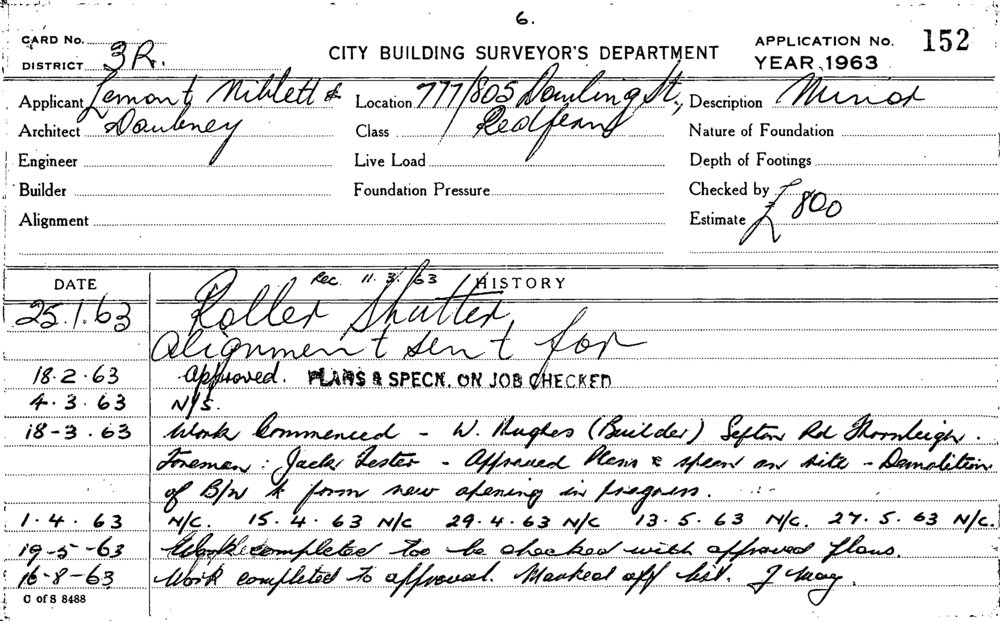 6.
CARD No.
DISTRICT 3R.
CITY BUILDING SURVEYOR'S DEPARTMENT
APPLICATION No. 152
YEAR 1963
Applicant Lemont, Niblett &
Location 777/805 Dowling St.,
Description Minor
Architect Daubney
Class Redfern
Nature of Foundation
Engineer
Live Load
Depth of Footings
Builder
Foundation Pressure
Checked by
Alignment
Estimate £800
DATE
Rec. 11.3.63
HISTORY
25.1.63 Roller Shutter
Alignment sent for
18.2.63 Approved. PLANS & SPECN. ON JOB CHECKED
4.3.63 N/S.
18-3.63 Work Commenced - W. Hughes (Builder) Sefton Rd Thornleigh.
Foreman: Jack Lester - Approved Plans & specn on site - Demolition
of B/w to form new opening in progress.
1.4.63 N/C. 15.4.63 N/C 29.4.63 N/C 13.5.63 N/C. 27.5.63 N/C.
19-5-63 Work completed too be checked with approved plans.
16-8-63 Work completed to approval. Marked off list. J May.
C of S 8488